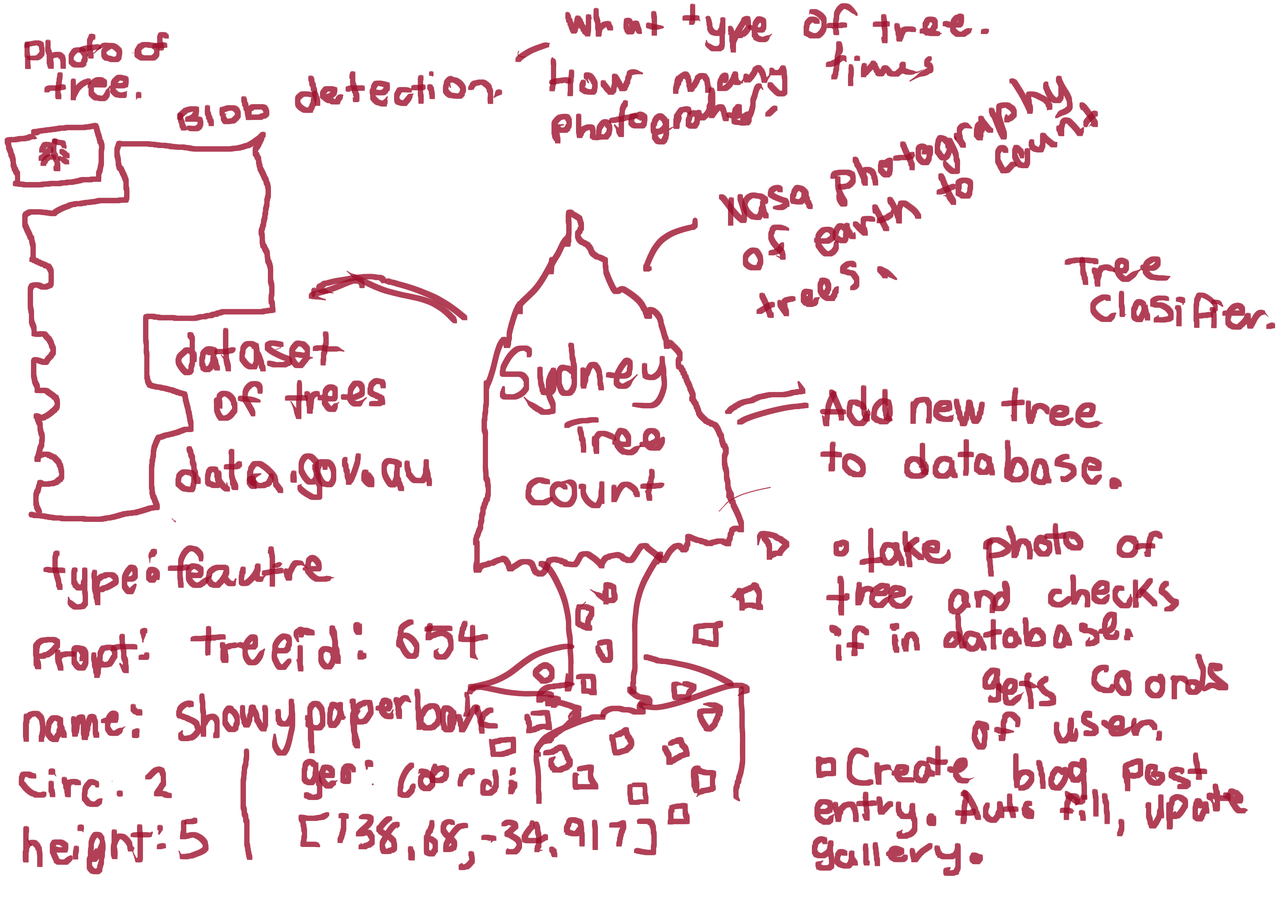 Photo of
tree.
Blob detection.
What type of tree.
How many times
photographed.
Nasa photography
of earth to count
trees.
Tree
Clasifier.
dataset
of trees
data.gov.au
Sydney
Tree
count
Add new tree
to database.
type: feautre
Propt: treeid: 654
name: Showy paperbark
circ. 2
height: 5
geo: coordi
[138.68, -34.917]
take photo of
tree and checks
if in database.
gets coords
of user.
Create blog post
entry. Auto fill, upate
gallery.